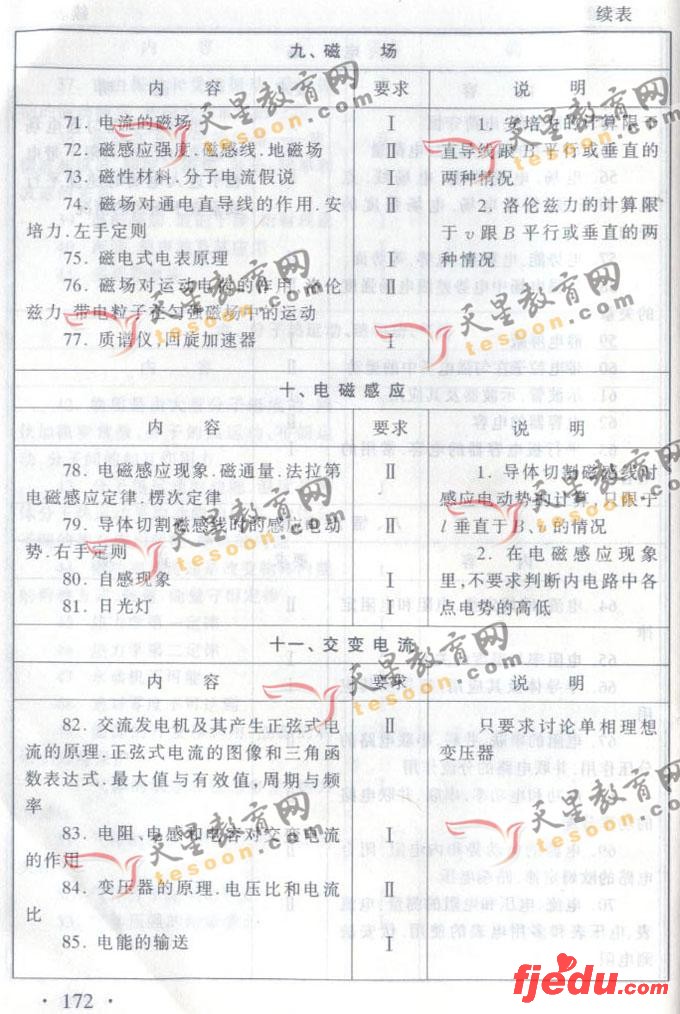 续表
九、磁 场
内 容 要求 说 明
71. 电流的磁场 Ⅰ 1. 安培力的计算限于
72. 磁感应强度.磁感线.地磁场 Ⅱ 直导线跟B平行或垂直的
73. 磁性材料.分子电流假说 Ⅰ 两种情况
74. 磁场对通电直导线的作用.安 Ⅱ 2. 洛伦兹力的计算限
培力.左手定则 于v跟B平行或垂直的两
75. 磁电式电表原理 Ⅰ 种情况
76. 磁场对运动电荷的作用.洛伦 Ⅱ
兹力.带电粒子在匀强磁场中的运动
77. 质谱仪,回旋加速器 Ⅰ
十、电磁感应
内 容 要求 说 明
78. 电磁感应现象.磁通量.法拉第 Ⅱ 1. 导体切割磁感线时
电磁感应定律.楞次定律 感应电动势的计算,只限于
79. 导体切割磁感线时的感应电动 Ⅱ l垂直于B、v的情况
势.右手定则 2. 在电磁感应现象
80. 自感现象 Ⅰ 里,不要求判断内电路中各
81. 日光灯 Ⅰ 点电势的高低
十一、交变电流
内 容 要求 说 明
82. 交流发电机及其产生正弦式电 Ⅱ 只要求讨论单相理想
流的原理.正弦式电流的图像和三角函 变压器
数表达式.最大值与有效值,周期与频
率
83. 电阻、电感和电容对交变电流 Ⅰ
的作用
84. 变压器的原理.电压比和电流 Ⅱ
比
85. 电能的输送 Ⅰ
· 172 ·
天星教育网
tesoon.com
天星教育网
tesoon.com
天星教育网
tesoon.com
天星教育网
tesoon.com
天星教育网
tesoon.com
天星教育网
tesoon.com
天星教育网
tesoon.com
天星教育网
tesoon.com
天星教育网
tesoon.com
fjedu.com